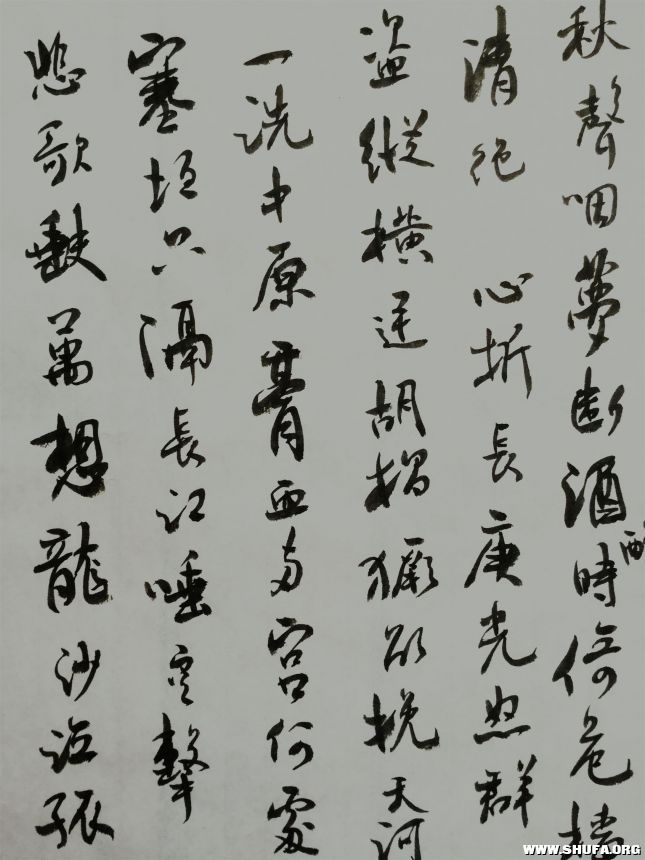 秋聲咽夢斷酒時倚危檣
醒
清絕 心折長庚光怒群
盜縱橫逆胡猖獗欲挽天河
一洗中原膏血兩宮何處
塞垣只隔長江唾擊
悲歌缺萬想龍沙泣孤
WWW.SHUFA.ORG